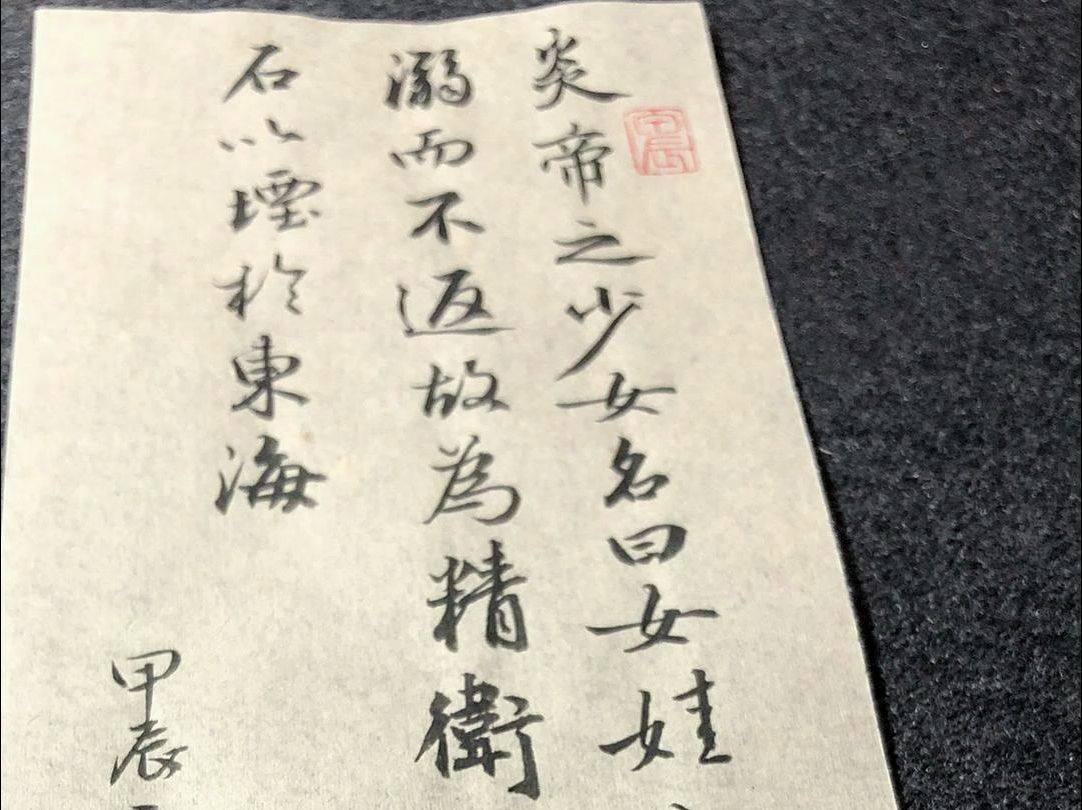 炎帝之少女名曰女娃
溺而不返故為精衛
石以堙於東海
甲辰
甲辰